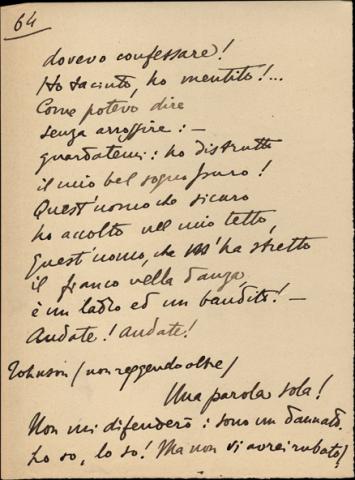 64
dovevo confessare!
Ho taciuto, ho mentito!...
Come potevo dire
senza arrossire: —
guardatemi: ho distrutto
il mio bel sogno puro!
Quest'uomo che sicuro
ho accolto nel mio tetto,
Quest'uomo, che m'ha stretto
il fianco nella danza
è un ladro ed un bandito! —
Andate! Andate!
Johnson (non reggendo oltre)
Una parola sola!
Non mi difenderò: sono un dannato.
Lo so, lo so! Ma non vi avrei rubato!